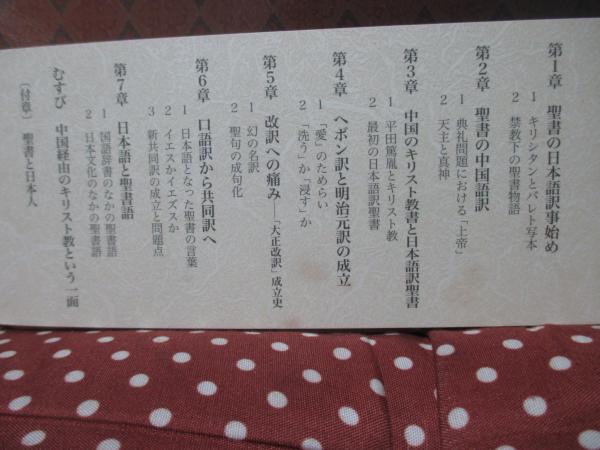 第1章 聖書の日本語訳事始め
1 キリシタンとバレト写本
2 禁教下の聖書物語
第2章 聖書の中国語訳
1 典礼問題における「上帝」
2 天主と真神
第3章 中国のキリスト教書と日本語訳聖書
1 平田篤胤とキリスト教
2 最初の日本語訳聖書
第4章 ヘボン訳と明治元訳の成立
1 「愛」のためらい
2 「洗う」か「浸す」か
第5章 改訳への痛み―「大正改訳」成立史
1 幻の名訳
2 聖句の成句化
第6章 口語訳から共同訳へ
1 日本語となった聖書の言葉
2 イエスかイエズスか
3 新共同訳の成立と問題点
第7章 日本語と聖書語
1 国語辞書のなかの聖書語
2 日本文化のなかの聖書語
むすび 中国経由のキリスト教という一面
〔付章〕 聖書と日本人